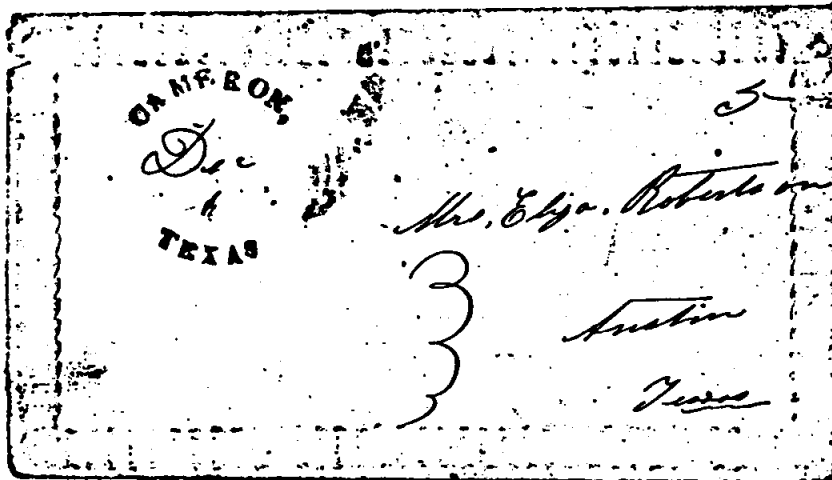 CAMERON,
Dec
TEXAS
5
Mrs. Eliza. Robertson
Austin
Texas